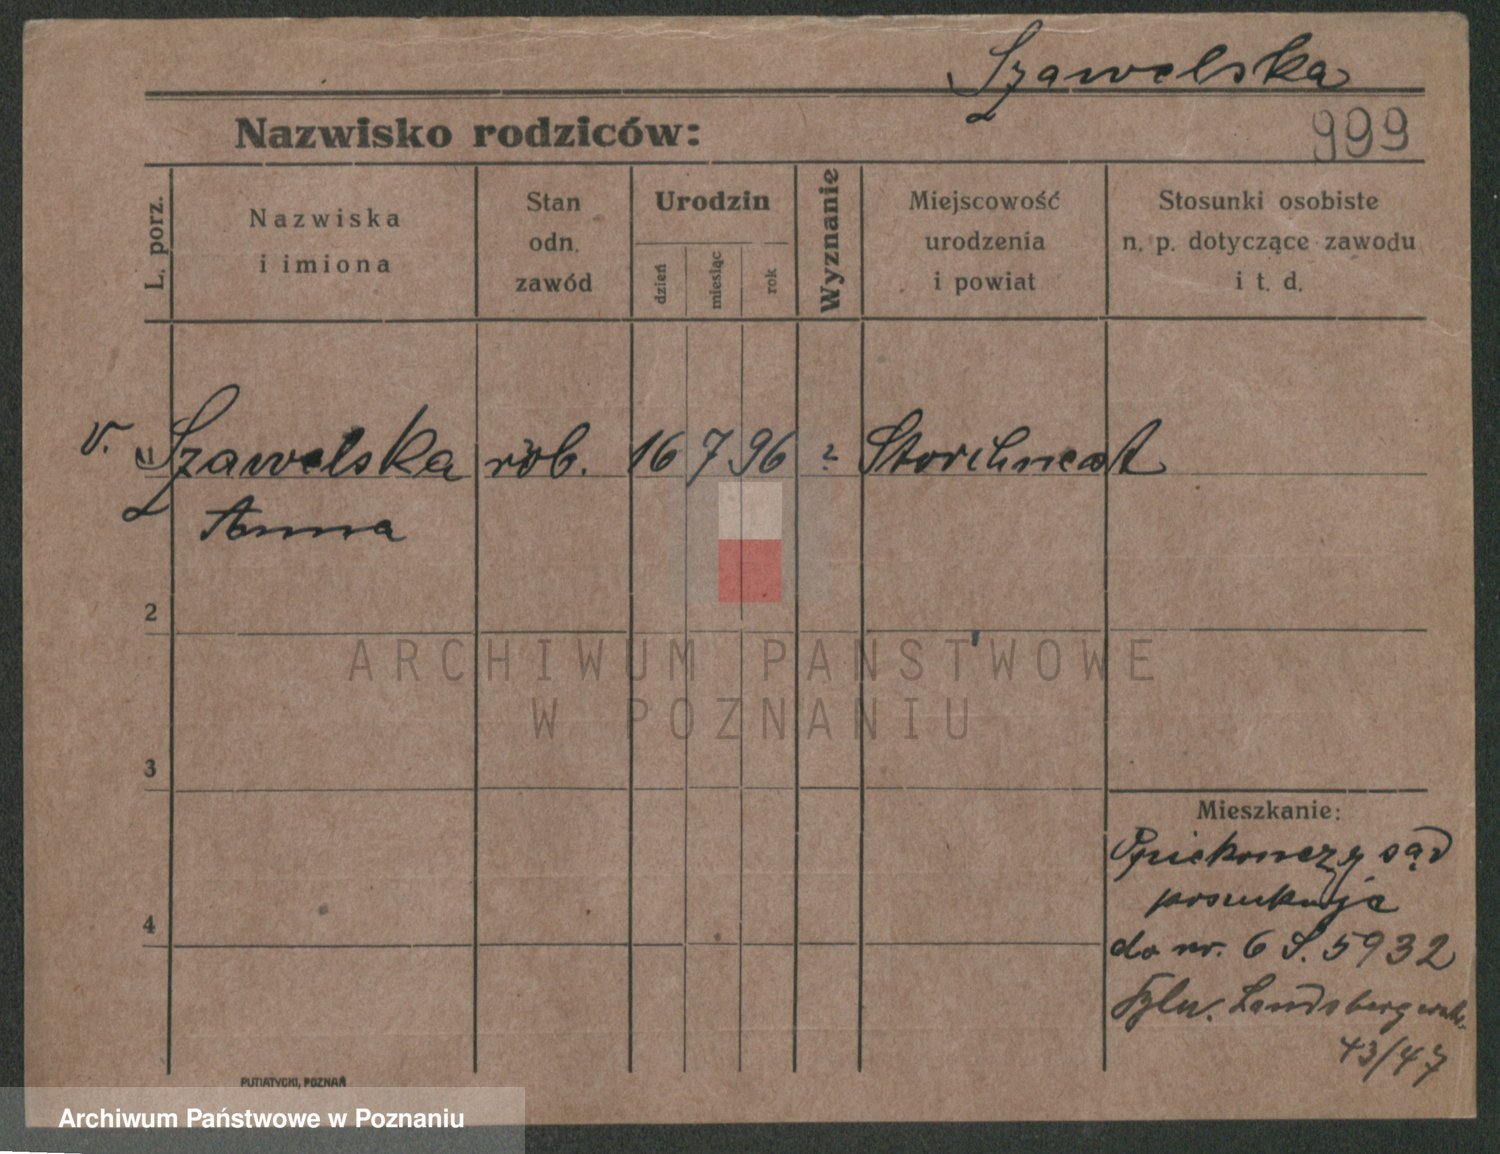 Szawelska
Nazwisko rodziców:
999
L. porz.
Nazwiska
i imiona
Stan
odn.
zawód
Urodzin
dzień
miesiąc
rok
Wyznanie
Miejscowość
urodzenia
i powiat
Stosunki osobiste
n. p. dotyczące zawodu
i t. d.
v. Szawelska rob. 16 7 96 ? Storchnest
Anna
2
ARCHIWUM PAŃSTWOWE
W POZNANIU
3
Mieszkanie:
Opiekonczy sąd
posukuje
4
do nr. 6 S. 5932
Landsbergerstr.
43/47
PUTIATYCKI, POZNAŃ
Archiwum Państwowe w Poznaniu